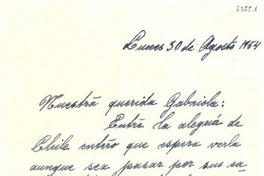 2355.1
Lunes 30 de Agosto 1954
Nuestra querida Gabriela:
Entre la alegría de
Chile entero que espera verla
aunque sea pasar por sus ca-